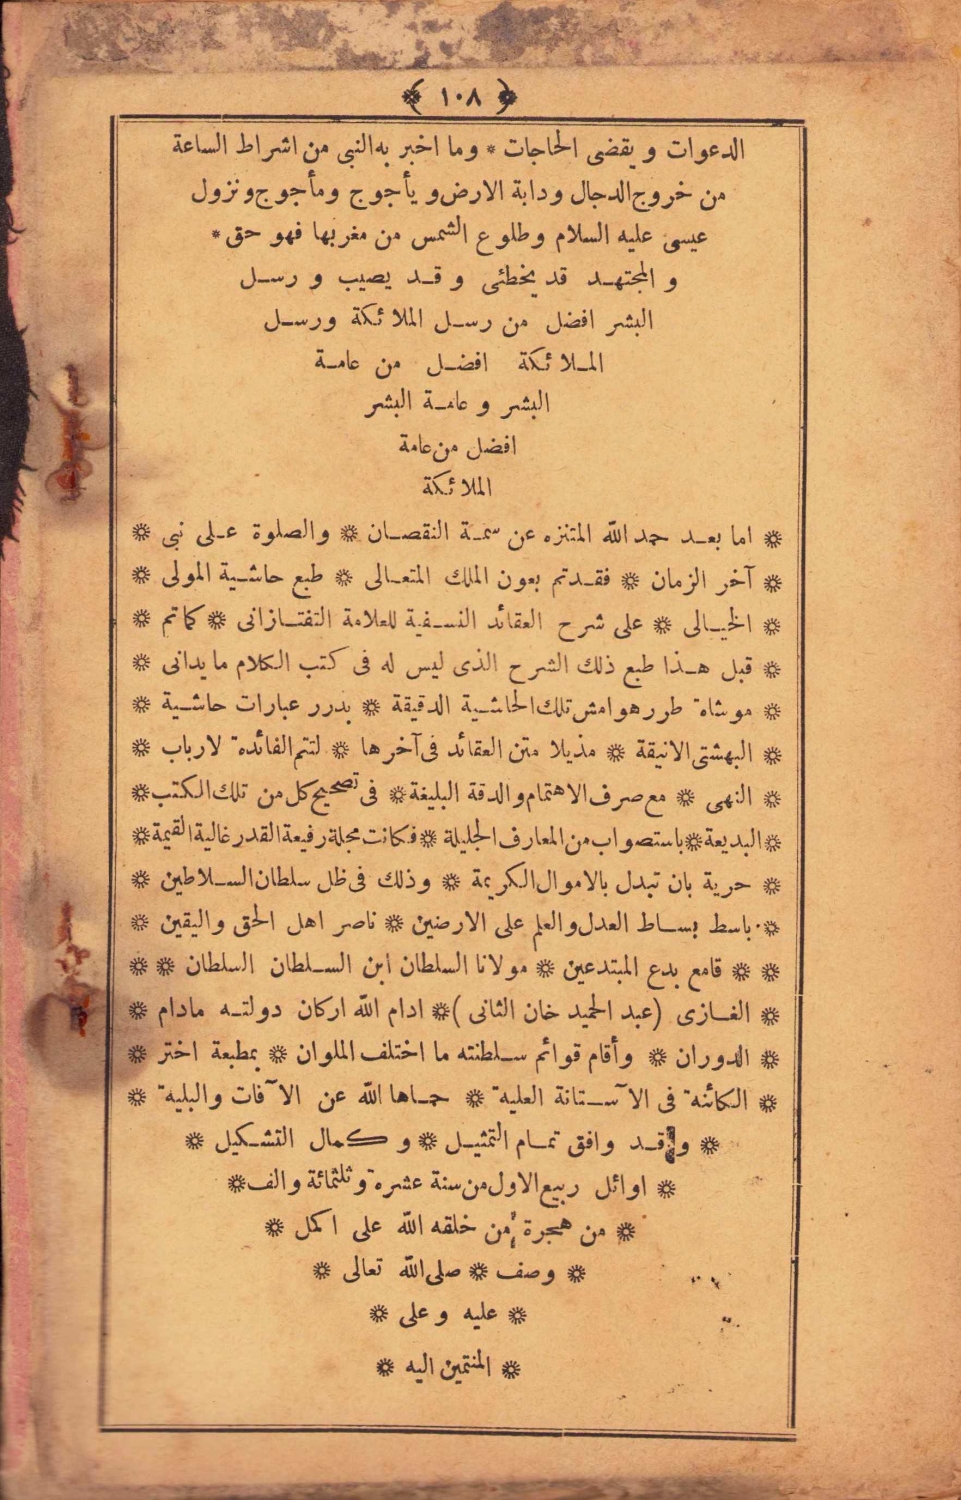 ﴿ ١٠٨ ﴾
الدعوات ويقضى الحاجات * وما اخبر به النبى من اشراط الساعة
من خروج الدجال ودابة الارض ويأجوج ومأجوج ونزول
عيسى عليه السلام وطلوع الشمس من مغربها فهو حق *
والمجتهد قد يخطئى وقد يصيب ورسل
البشر افضل من رسل الملائكة ورسل
الملائكة افضل من عامة
البشر وعامة البشر
افضل من عامة
الملائكة
* اما بعد حمد الله المتنزه عن سمة النقصان * والصلوة على نبى *
* آخر الزمان * فقدتم بعون الملك المتعالى * طبع حاشية المولى *
* الخيالى * على شرح العقائد النسفية للعلامة التفتازانى * كماتم *
* قبل هذا طبع ذلك الشرح الذى ليس له فى كتب الكلام مايدانى *
* موشاة طررهوامش تلك الحاشية الدقيقة * بدرر عبارات حاشية *
* البهشتى الانيقة * مذيلا متن العقائد فى آخرها * لتتم الفائدة لارباب *
* النهى * مع صرف الاهتمام والدقة البليغة * فى تصحيح كل من تلك الكتب *
* البديعة * باستصواب من المعارف الجليلة * فكانت مجلة رفيعة القدر غالية القيمة *
* حرية بان تبدل بالاموال الكريمة * وذلك فى ظل سلطان السلاطين *
* باسط بساط العدل والعلم على الارضين * ناصر اهل الحق واليقين *
* * قامع بدع المبتدعين * مولانا السلطان ابن السلطان السلطان * *
* الغازى (عبد الحميد خان الثانى) * ادام الله اركان دولته مادام *
* الدوران * وأقام قوائم سلطنته ما اختلف الملوان * بمطبعة اختر *
* الكائنة فى الآستانة العلية * حماها الله عن الآفات والبلية *
* وقد وافق تمام التمثيل * وكمال التشكيل *
* اوائل ربيع الاول من سنة عشرة وثلثمائة والف *
* من هجرة من خلقه الله على اكمل *
* وصف * صلى الله تعالى *
* عليه وعلى *
* المنتمين اليه *